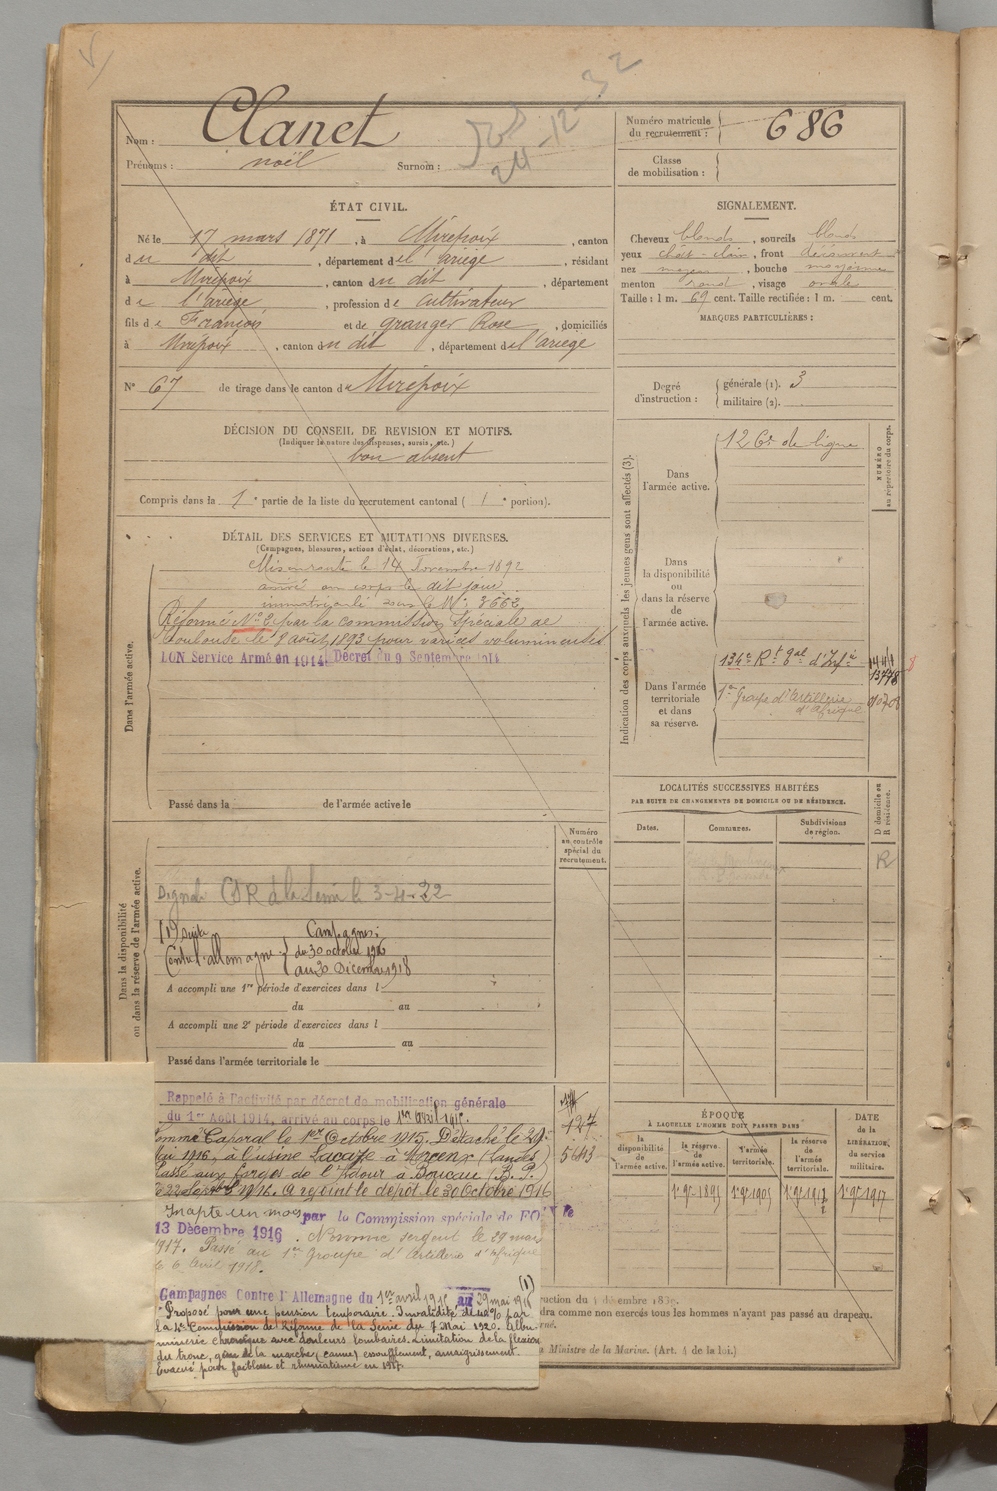 Nom : Clanet
Prénoms : noël Surnom :
24-12-32
Numéro matricule
du recrutement : 686
Classe
de mobilisation :
ÉTAT CIVIL.
Né le 17 mars 1871, à Mirepoix, canton
du dit, département de l'ariège, résidant
à Mirepoix, canton du dit, département
de l'ariège, profession de cultivateur
fils de François et de granger Rose, domiciliés
à Mirepoix, canton du dit, département de l'ariège
N° 67 de tirage dans le canton de Mirepoix
DÉCISION DU CONSEIL DE REVISION ET MOTIFS.
(Indiquer la nature des dispenses, sursis, etc.)
bon absent
Compris dans la 1e partie de la liste du recrutement cantonal (1e portion).
SIGNALEMENT.
Cheveux blonds, sourcils blonds
yeux chât-clair, front découvert
nez moyen, bouche moyenne
menton rond, visage ovale
Taille : 1 m. 69 cent. Taille rectifiée : 1 m. cent.
MARQUES PARTICULIÈRES :
Degré
d'instruction :
générale (1). 3
militaire (2).
DÉTAIL DES SERVICES ET MUTATIONS DIVERSES.
(Campagnes, blessures, actions d'éclat, décorations, etc.)
Dans l'armée active.
Mis en route le 14 Novembre 1892
arrivé au corps le dit jour
immatriculé sous le N° 3662
Réformé N° 2 par la commission spéciale de
Toulouse le 8 août 1893 pour varices volumineuses
BON Service Armé en 1914 Décret du 9 Septembre 1914
Passé dans la de l'armée active le
Indication des corps auxquels les jeunes gens sont affectés (3).
NUMÉRO
au répertoire du corps.
Dans
l'armée active.
126e de ligne
Dans
la disponibilité
ou
dans la réserve
de
l'armée active.
Dans l'armée
territoriale
et dans
sa réserve.
134e Rt gal d'Infie
13778
1er Groupe d'artillerie
d'Afrique
010708
LOCALITÉS SUCCESSIVES HABITÉES
PAR SUITE DE CHANGEMENTS DE DOMICILE OU DE RÉSIDENCE.
Dates.
Communes.
Subdivisions
de région.
D domicile ou
R résidence.
R
Numéro
au contrôle
spécial du
recrutement.
Dans la disponibilité
ou dans la réserve de l'armée active.
CDR à la Seine le 3-4-22
(1) suite Campagnes :
Contre l'allemagne du 30 octobre 1916
au 30 Décembre 1918
A accompli une 1re période d'exercices dans l
du au
A accompli une 2e période d'exercices dans l
du au
Passé dans l'armée territoriale le
Rappelé à l'activité par décret de mobilisation générale
du 1er Août 1914, arrivé au corps le 1er avril 1915.
127
5643
Nommé Caporal le 1er Octobre 1915. Détaché le 29
Mai 1916, à l'usine Lacaze à Morcenx (Landes)
Passé aux Forges de l'Adour à Boucau (B. P.)
1916. A rejoint le dépôt le 30 Octobre 1916
Inapte un mois par la Commission spéciale de
13 Décembre 1916. Nommé sergent le 29 mars
1917. Passé au 1er Groupe d'Artillerie d'Afrique
le 6 Avril 1918.
Campagnes Contre l'Allemagne du 1er avril 1915 au 29 mai 1916 (1)
Proposé pour une pension temporaire. Invalidité de 40% par
la 4e Commission de Réforme de la Seine du 7 Mai 1920. Albu-
minerie chronique avec douleurs lombaires. Limitation de la flexion
du tronc, gêne de la marche (canne) essoufflement, amaigrissement.
Evacué pour faiblesse et rhumatisme en 1917.
ÉPOQUE
À LAQUELLE L'HOMME DOIT PASSER DANS
DATE
de la
LIBÉRATION
du
service
militaire.
la
disponibilité
de
l'armée active.
la réserve
de
l'armée active.
l'armée
territoriale.
la réserve
de
l'armée
territoriale.
1er 9bre 1895
1er 9bre 1905
1er 9bre 1917
ruction du 4 décembre 1889.
dra comme non exercés tous les hommes n'ayant pas passé au drapeau.
Ministre de la Marine. (Art. 4 de la loi.)